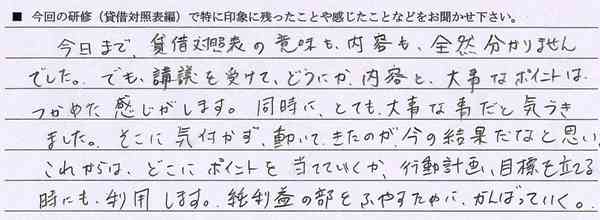 ■ 今回の研修（貸借対照表編）で特に印象に残ったことや感じたことなどをお聞かせ下さい。
今日まで、貸借対照表の意味も、内容も、全然分かりません
でした。でも、講議を受けて、どうにか、内容と、大事なポイントは、
つかめた感じがします。同時に、とても、大事な事だと気づき
ました。そこに気付かず、動いてきたのが、今の結果だなと思い、
これからは、どこにポイントを当てていくか、行動計画、目標を立てる
時にも、利用します。純利益の部をふやすために、がんばっていく。